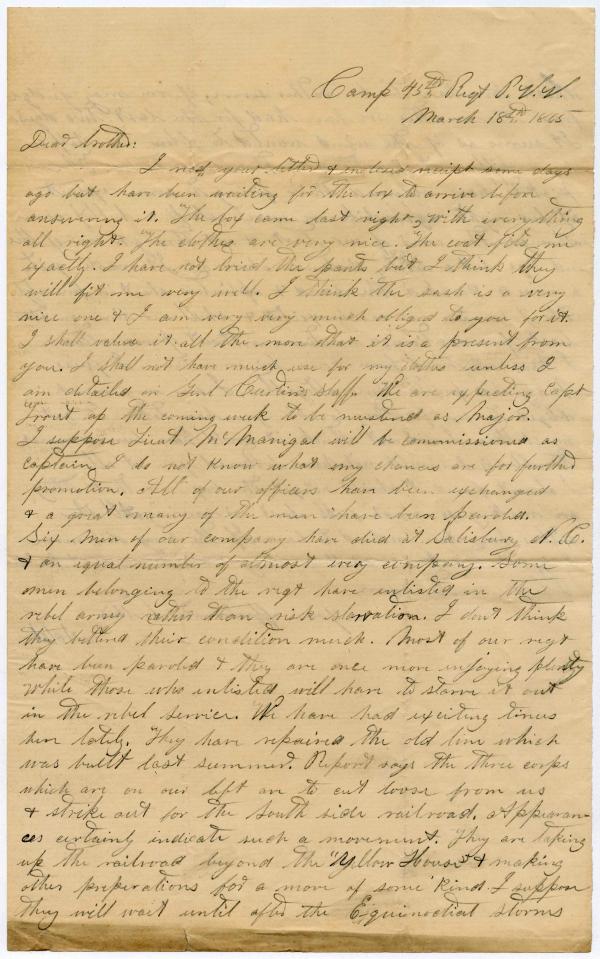 Camp 45th Regt P.V.V.
March 18th 1865
Dear brother:
I recd your letter & enclosed receipt some days
ago but have been waiting for the box to arrive before
answering it. The box came last night, with every thing
all right. The clothes are very nice. The coat fits me
exactly. I have not tried the pants but I think they
will fit me very well. I think the sash is a very
nice one & I am very very much obliged to you for it.
I shall value it all the more that it is a present from
you. I shall not have much use for my clothes unless I
am detailed on Genl Curtin's staff. We are expecting Capt
Trout up the coming week to be mustered as Major.
I suppose Lieut McManigal will be commissioned as
captain. I do not know what my chances are for further
promotion. All of our officers have been exchanged
& a great many of the men have been paroled.
Six men of our company have died at Salisbury N.C.
& an equal number of almost every company. Some
men belonging to the regt have enlisted in the
rebel army rather than risk starvation. I don't think
they bettered their condition much. Most of our regt
have been paroled & they are once more enjoying plenty
while those who enlisted will have to starve it out
in the rebel service. We have had exciting times
here lately. They have repaired the old line which
was built last summer. Report says the three corps
which are on our left are to cut loose from us
& strike out for the South side railroad. Appearan-
ces certainly indicate such a movement. They are taking
up the railroad beyond the "Yellow House" & making
other preparations for a move of some kind. I suppose
they will wait until after the Equinoctial storms